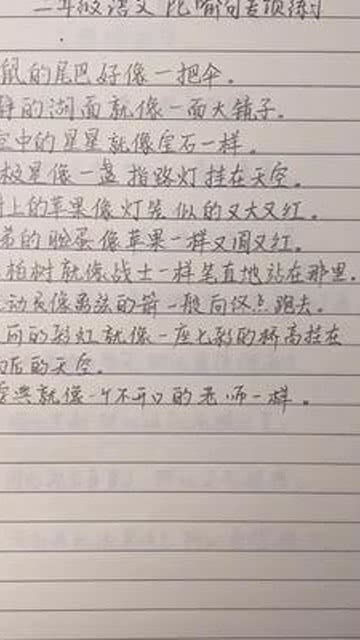 二年级语文 比喻句专项练习
鼠的尾巴好像一把伞。
静的湖面就像一面大镜子。
空中的星星就像宝石一样。
极星像一盏指路灯挂在天空。
树上的苹果像灯笼似的又大又红。
弟的脸蛋像苹果一样又圆又红。
柏树就像战士一样笔直地站在那里。
动员像离弦的箭一般向终点跑去。
雨的彩虹就像一座七彩的桥高挂在
后的天空。
字典就像一个不开口的老师一样。